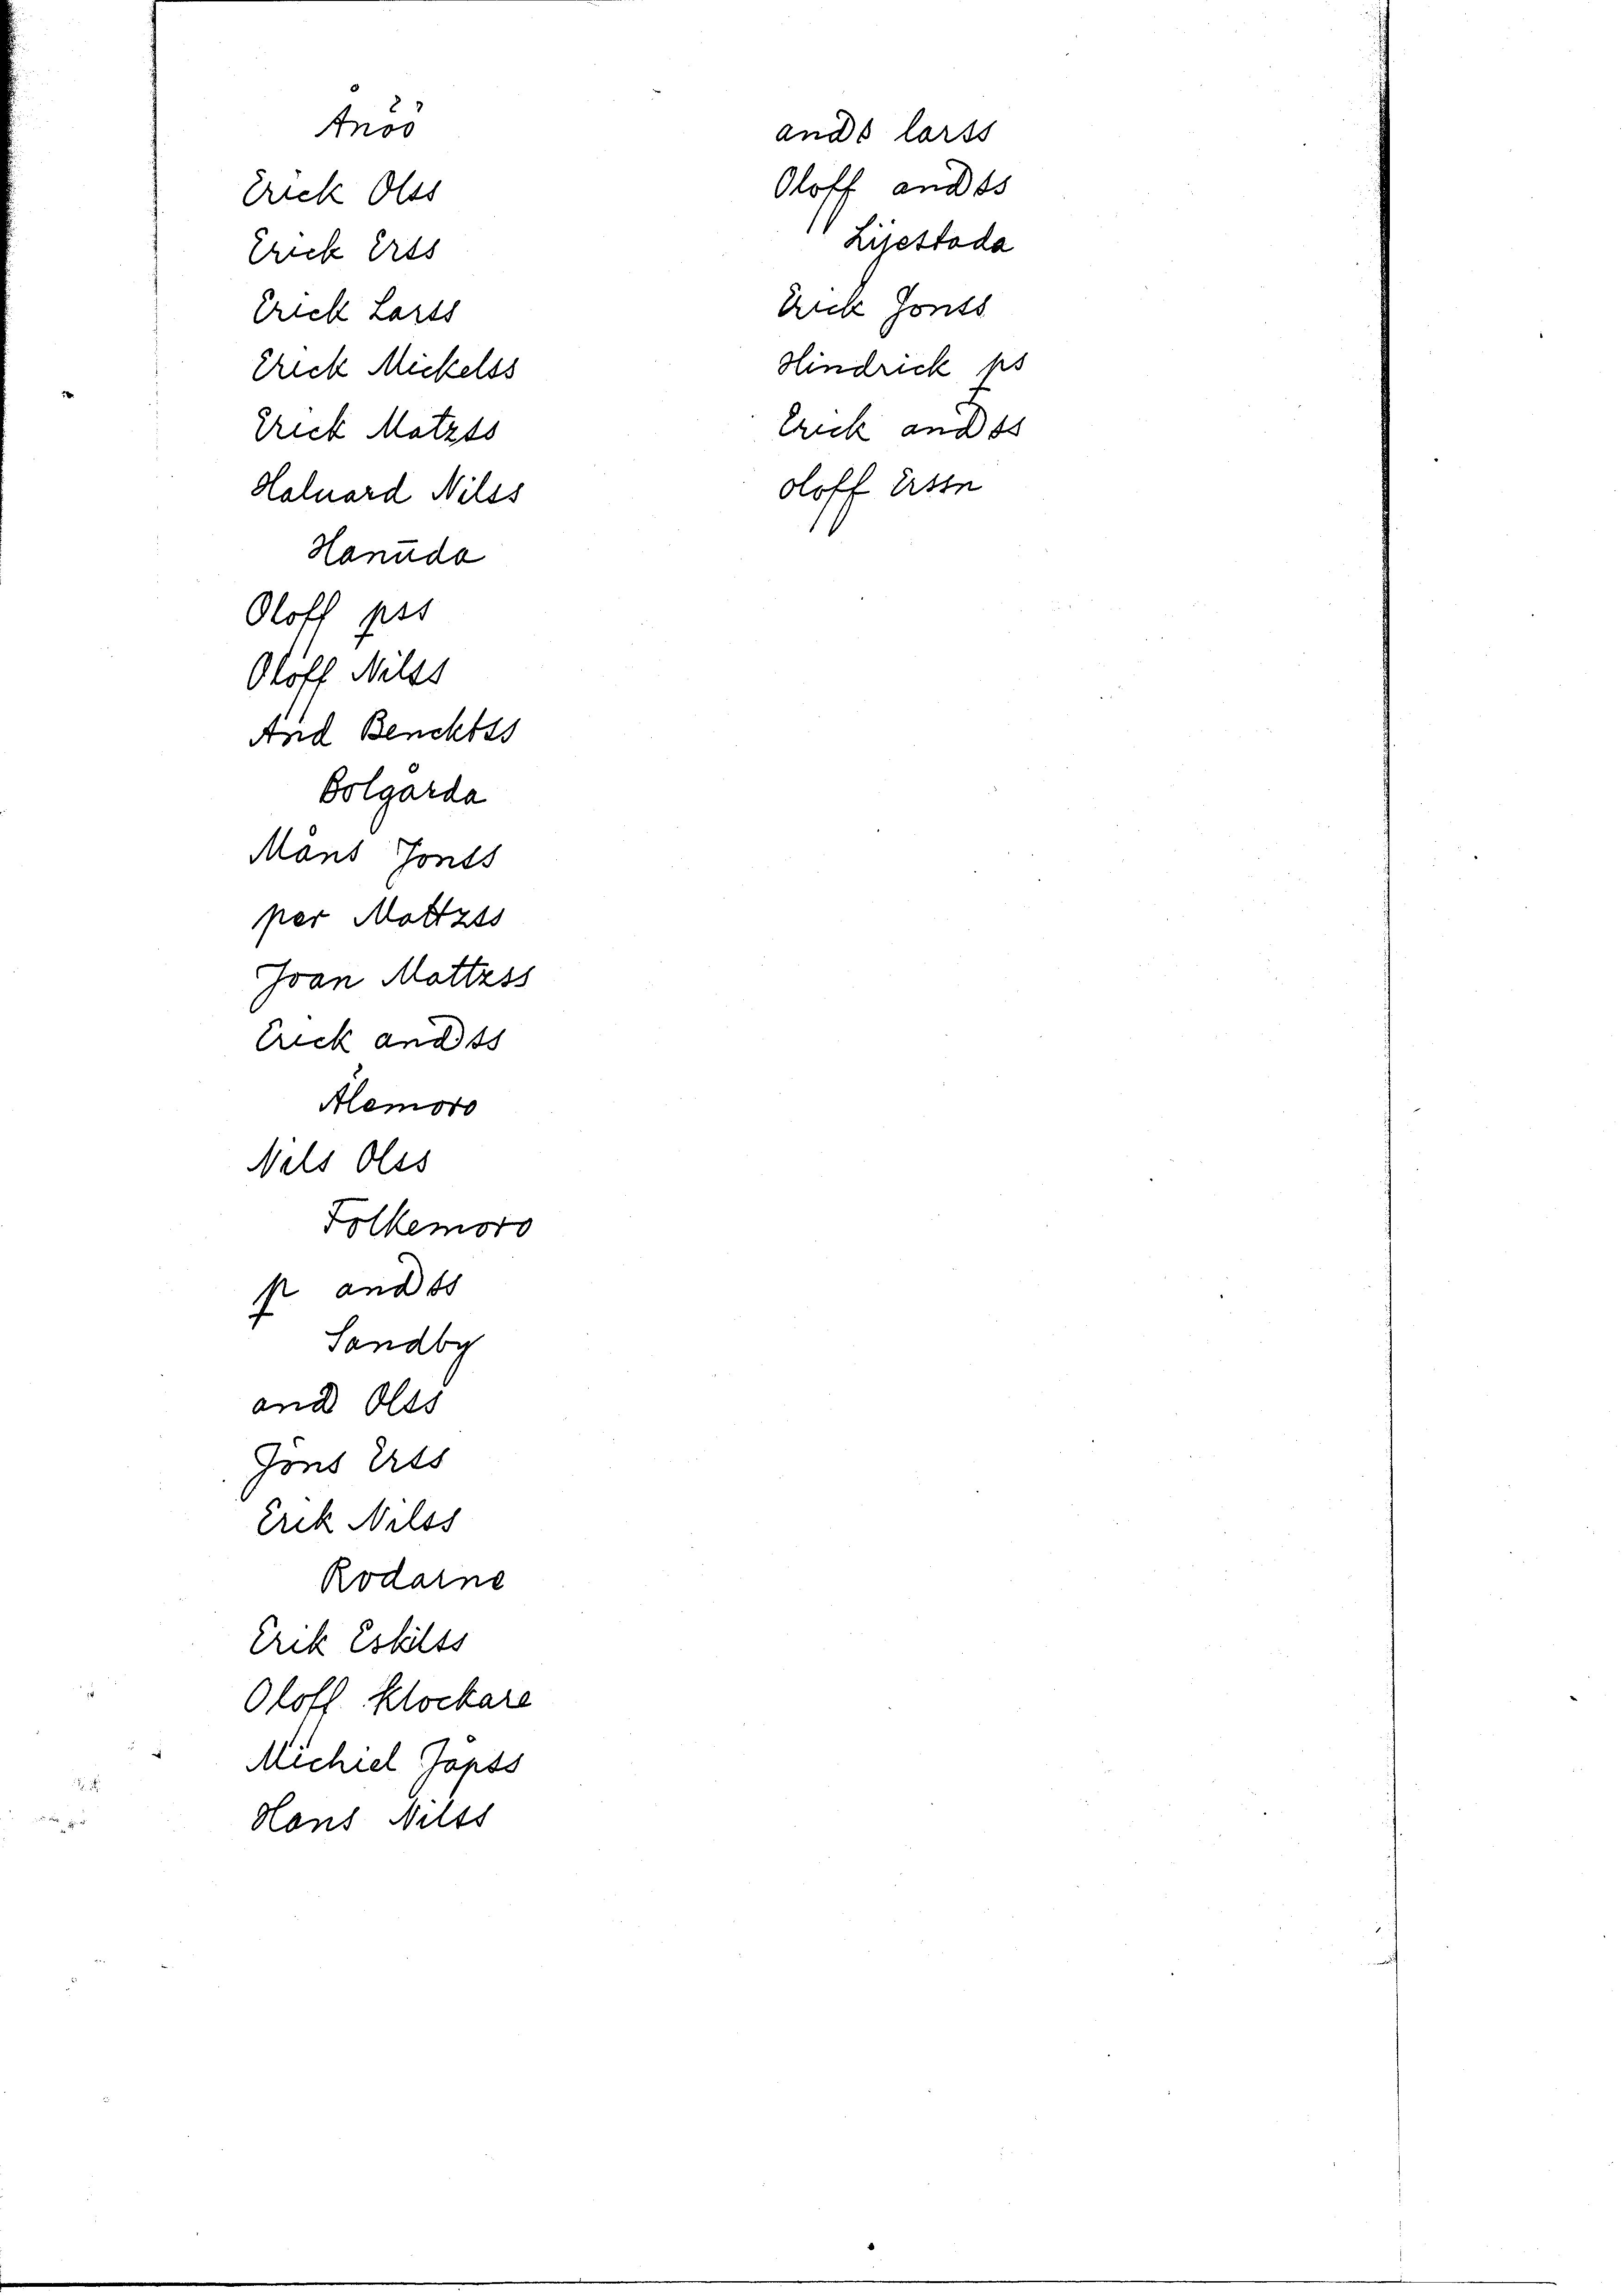 Ånöö
Erick Olss
Erick Erss
Erick Larss
Erick Mickelss
Erick Matzss
Haluard Nilss
Hanüda
Oloff pss
Oloff Nilss
And Bencktss
Bolgårda
Måns Jonss
per Mattzss
Joan Mattzss
Erick andss
Ålamoro
Nils Olss
Folkemoro
p andss
Sandby
and Olss
Jöns Erss
Erik Nilss
Rodarne
Erik Eskilss
Oloff klockare
Michiel Jåpss
Hans Nilss
ands larss
Oloff andss
Lijestada
Erick Jonss
Hindrick ps
Erick andss
oloff Erssn